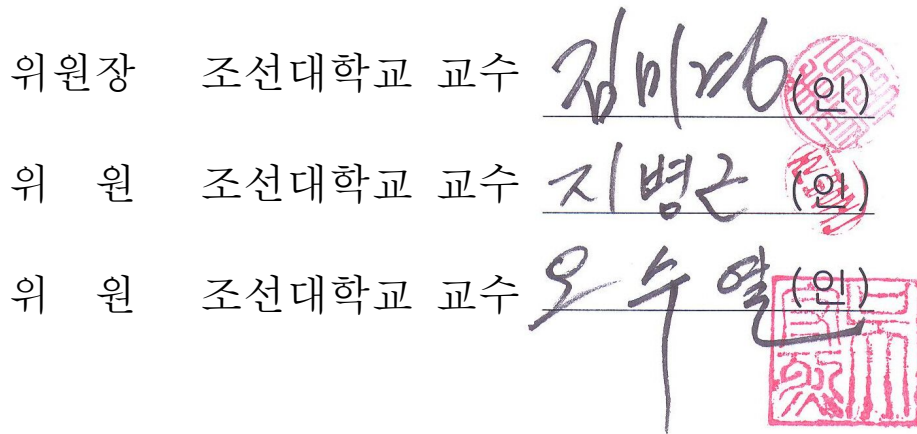 위원장 조선대학교 교수 김미경 (인)
위 원 조선대학교 교수 지병근 (인)
위 원 조선대학교 교수 오수열 (인)